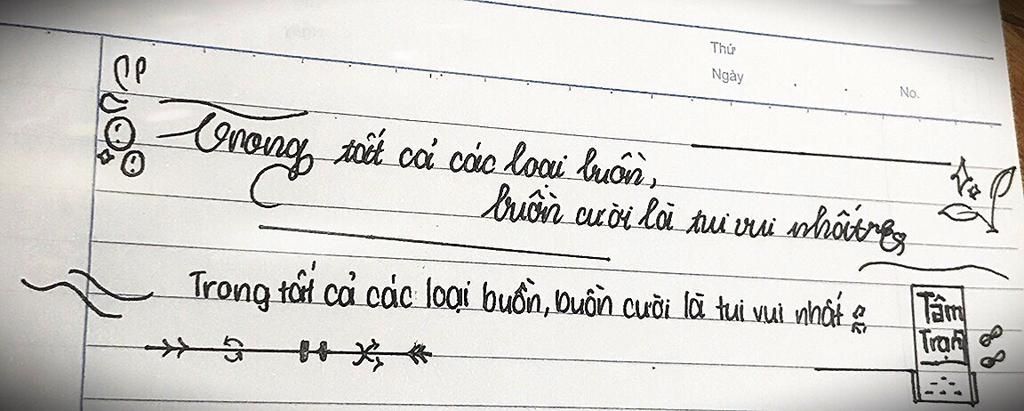 Thứ
Ngày
No.
Trong tất cả các loại buồn,
buồn cười là tui vui nhất
Trong tất cả các loại buồn, buồn cười là tui vui nhất
Tâm
Trạng